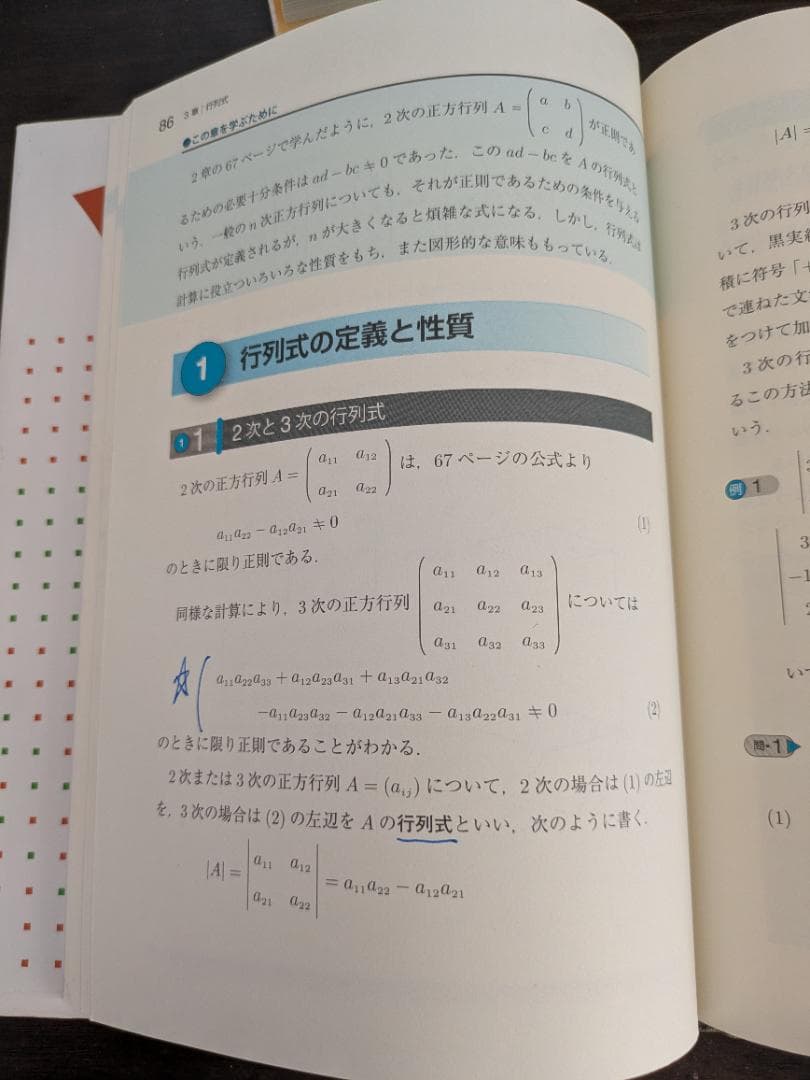 86 3章 行列式
●この章を学ぶために
2章の67ページで学んだように,2次の正方行列 A = ( a b
c d ) が正則であ
るための必要十分条件は ad − bc ≠ 0 であった.この ad − bc を A の行列式と
いう.一般の n 次正方行列についても,それが正則であるための条件を与える
行列式が定義されるが,n が大きくなると煩雑な式になる.しかし,行列式は
計算に役立ついろいろな性質をもち,また図形的な意味ももっている.
1 行列式の定義と性質
1 1 2次と3次の行列式
2次の正方行列 A = ( a₁₁ a₁₂
a₂₁ a₂₂ ) は,67ページの公式より
a₁₁a₂₂ − a₁₂a₂₁ ≠ 0 (1)
のときに限り正則である.
同様な計算により,3次の正方行列 ( a₁₁ a₁₂ a₁₃
a₂₁ a₂₂ a₂₃
a₃₁ a₃₂ a₃₃ ) については
☆( a₁₁a₂₂a₃₃ + a₁₂a₂₃a₃₁ + a₁₃a₂₁a₃₂
−a₁₁a₂₃a₃₂ − a₁₂a₂₁a₃₃ − a₁₃a₂₂a₃₁ ≠ 0 (2)
のときに限り正則であることがわかる.
2次または3次の正方行列 A = (aᵢⱼ) について,2次の場合は (1) の左辺
を,3次の場合は (2) の左辺を A の行列式といい,次のように書く.
|A| = | a₁₁ a₁₂
a₂₁ a₂₂ | = a₁₁a₂₂ − a₁₂a₂₁
|A| =
3次の行列
いて,黒実線
積に符号「+
で連ねた文
をつけて加
3次の行
るこの方法
いう.
例 1
3
−1
2
い
問・1
(1)